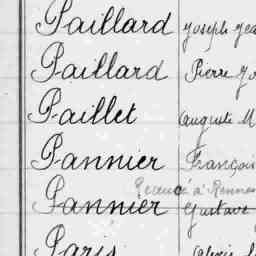 Paillard Joseph Jea
Paillard Pierre Jo
Paillet Auguste M
Pannier François
Recensé à Rennes
Pannier Gustave
Paris Alexis